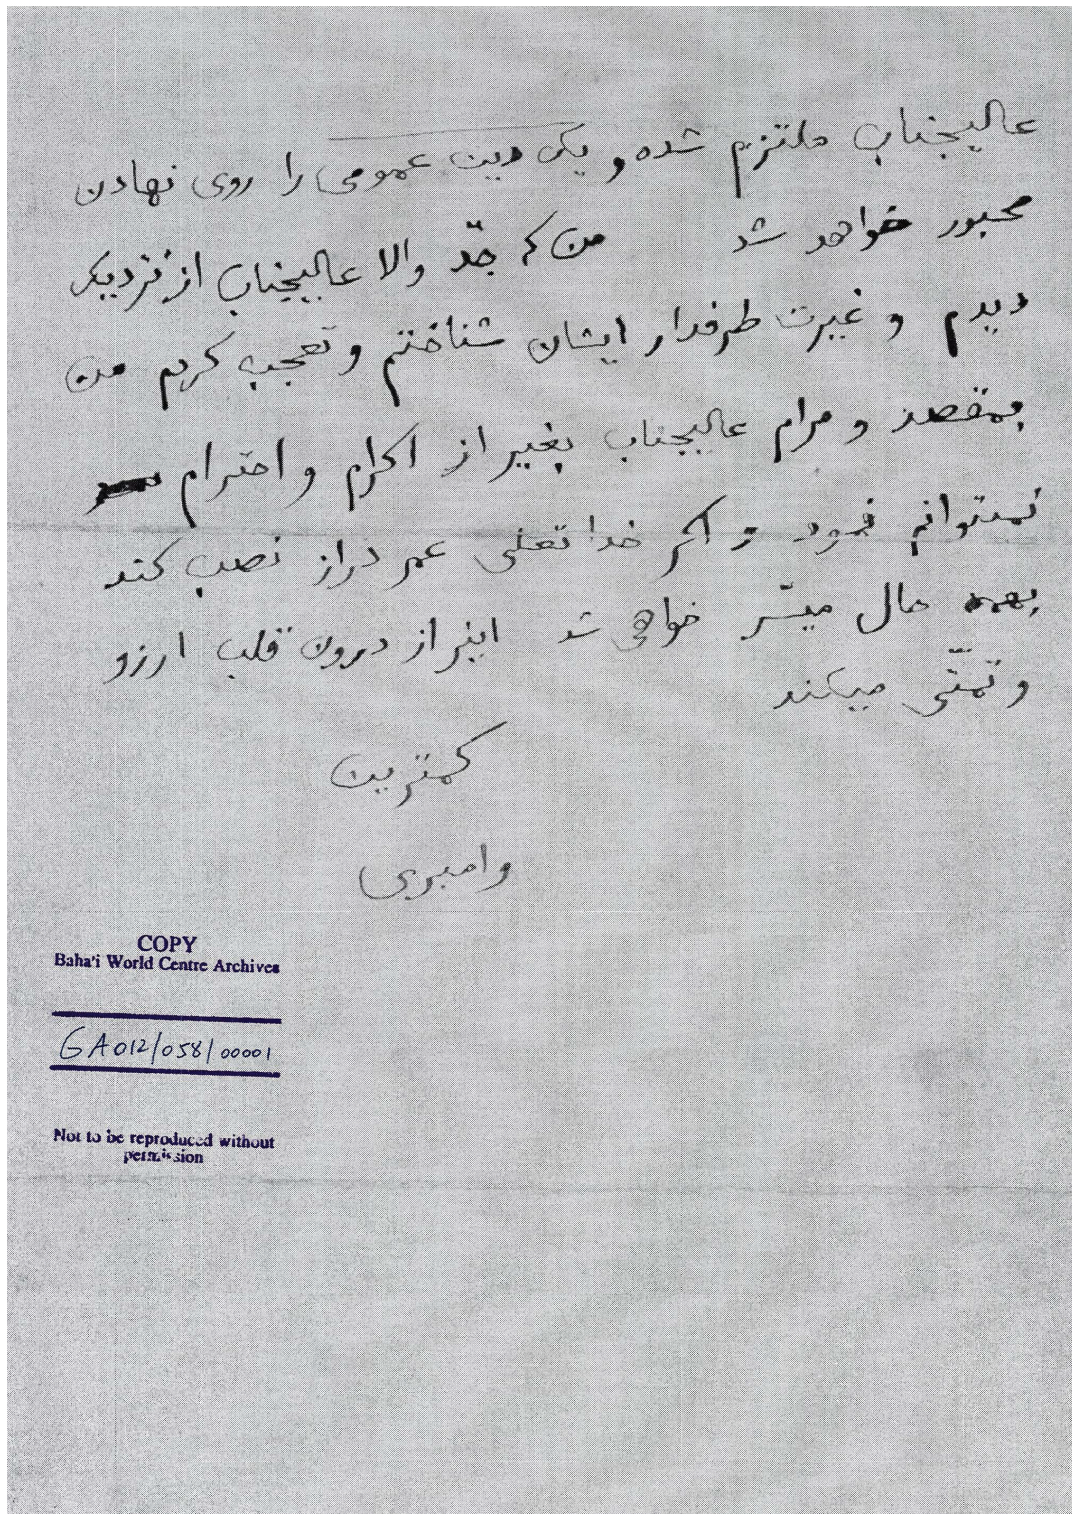 عالیجناب ملتزم شده و یک دین عمومی را روی نهادن
مجبور خواهد شد من که جدّ والا عالیجناب از نزدیک
دیدم و غیرت طرفدار ایشان شناختم و تعجب کردم من
بمقصد و مرام عالیجناب بغیر از اکرام و احترام
نمیتوانم نمود و اکر خدا تعلی عمر دراز نصب کند
بهمه حال میسّر خواهی شد اینرا از درون قلب ارزو
و تمنّی میکند
کمترین
وامبری
COPY
Baha'i World Centre Archives
GA012/058/00001
Not to be reproduced without
permission